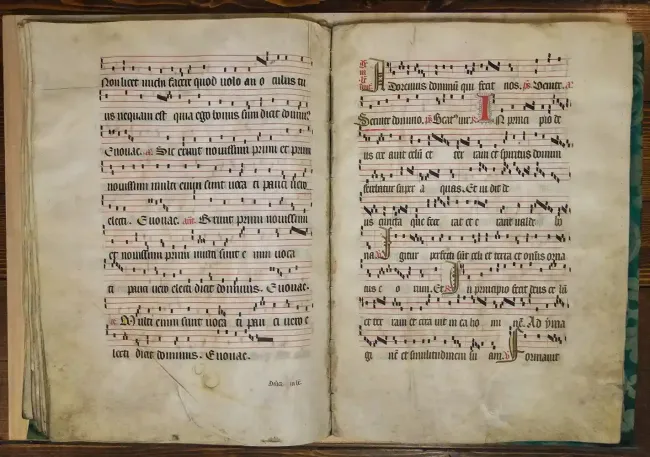 Non licet michi facere quod volo an o culus tu
us nequam est quia ego bonus sum dicit dominus
Euouae. Sic erunt novissimi primi et primi
novissimi multi enim sunt voca ti pauci vero
electi. Euouae. an. Erunt primi novissimi
et novissimi primi multi sunt e nim voca
ti pauci vero electi dicit dominus. Euouae.
Multi enim sunt voca ti pau ci vero e
lecti dicit dominus. Euouae.
Adoremus dominum qui fecit nos. ps. Venite.
Servite domino. ps. Beatus vir. IN princi pio de
us cre avit celum et ter ram et spiritus domini
ferebatur super a quas. Et vi dit de
us cuncta que fece rat et e rant valde bo
na Igitur perfecti sunt celi et terra et omnis orna
tus e o rum. Et In principio fecit deus ce lum
et ter ram et crea vit in ea ho mi nem. Ad yma
gi nem et similitudinem su am. Formavit